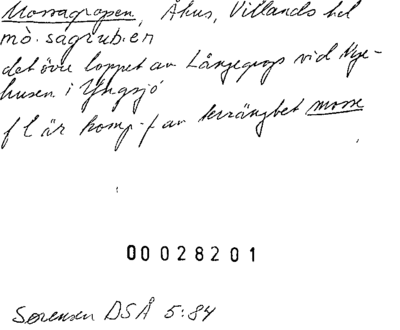 Mossagropen, Åhus, Villands hd
mò.sagrub.en
det övre loppet av Långegrop vid Nye-
husen i Yngsjö
f l är komp-f av terrängbet mosse
00028201
Sørensen DSÅ 5:84